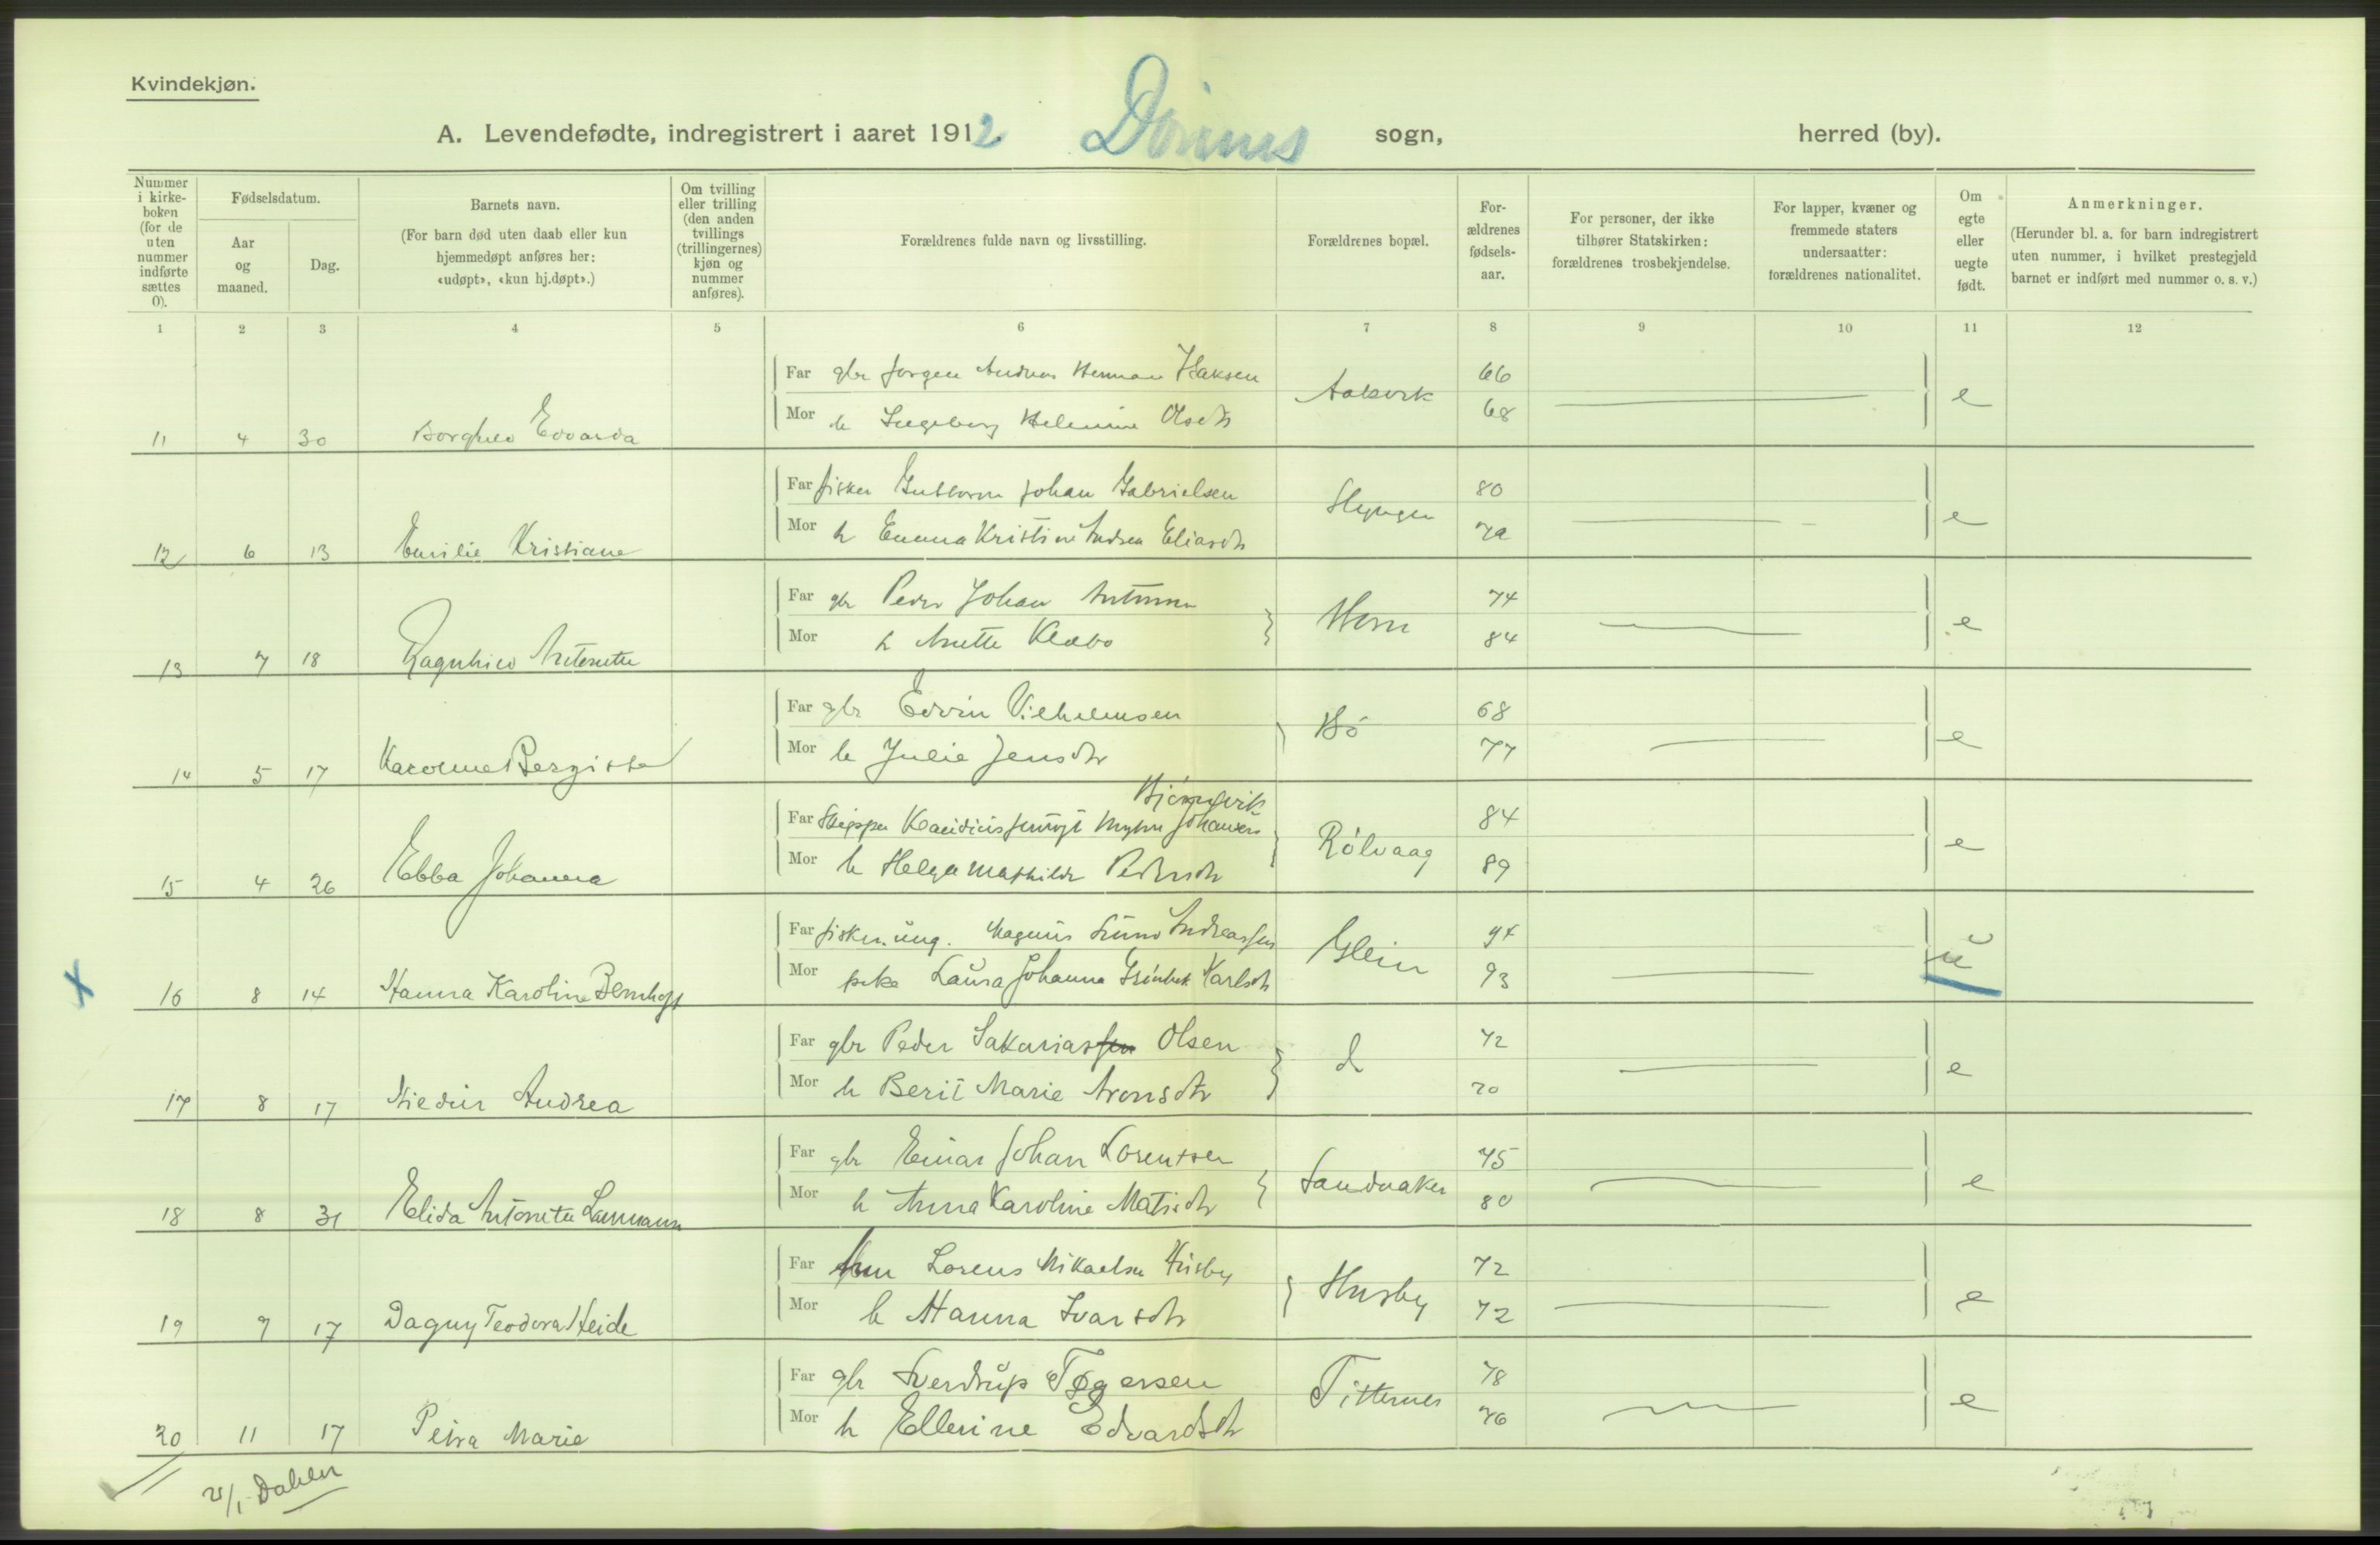 Kvindekjøn.
A. Levendefødte, indregistrert i aaret 1912. Dønnes sogn, herred (by).
Nummer i kirke-boken (for de uten nummer indførte sættes 0).
Fødselsdatum.
Aar og maaned.
Dag.
Barnets navn.
(For barn død uten daab eller kun hjemmedøpt anføres her: «udøpt», «kun hj.døpt».)
Om tvilling eller trilling (den anden tvillings (trillingernes) kjøn og nummer anføres).
Forældrenes fulde navn og livsstilling.
Forældrenes bopæl.
For-ældrenes fødsels-aar.
For personer, der ikke tilhører Statskirken: forældrenes trosbekjendelse.
For lapper, kvæner og fremmede staters undersaatter: forældrenes nationalitet.
Om egte eller uegte født.
Anmerkninger.
(Herunder bl. a. for barn indregistrert uten nummer, i hvilket prestegjeld barnet er indført med nummer o. s. v.)
1 2 3 4 5 6 7 8 9 10 11 12
Far gbr Jørgen Andreas Herman Isaksen 66
Mor h Ingeborg Helmine Olsdtr Aakvik 68 e
11 4 30 Borghild Edvarda
Far fisker Guttorm Johan Gabrielsen 80
Mor h Emma Kristine Andrea Eliasdtr 72 e
12 6 13 Emilie Kristiane
Far gbr Peder Johan Antonsen 74
Mor h Anette Klæbo Horn 84 e
13 7 18 Ragnhild Antonette
Far gbr Edvin Vilhelmsen 68
Mor h Julie Jensdtr Bø 77 e
14 5 17 Karoline Bergitte
Bjørnvik
Far Skipper Klaudius Johansen 84
Mor h Helga Mathilde Pedersdtr Rølvaag 89 e
15 4 26 Ebba Johanna
Far fisker. ung. Magnus Andreassen 94
Mor pike Laura Johanna Grønbek Karlsdtr Glein 93 u
16 8 14 Hanna Karoline Bernhoft
Far gbr Peder Sakariassen Olsen 72
Mor h Berit Marie Aronsdtr d 70 e
17 8 17 Andrea
Far gbr Einar Johan Lorentsen 75
Mor h Anna Karoline Matisdtr Sandaaker 80 e
18 8 31 Elida Antonette Laumann
Far Lorens Mikaelsen Husby 72
Mor h Hanna Ivarsdtr Husby 72 e
19 9 17 Dagny Teodora Heide
Far gbr Sverdrup Tøgersen 78
Mor h Ellerine Edvardsdtr Titternes 76 e
20 11 17 Petra Marie
21/1 Dahlen